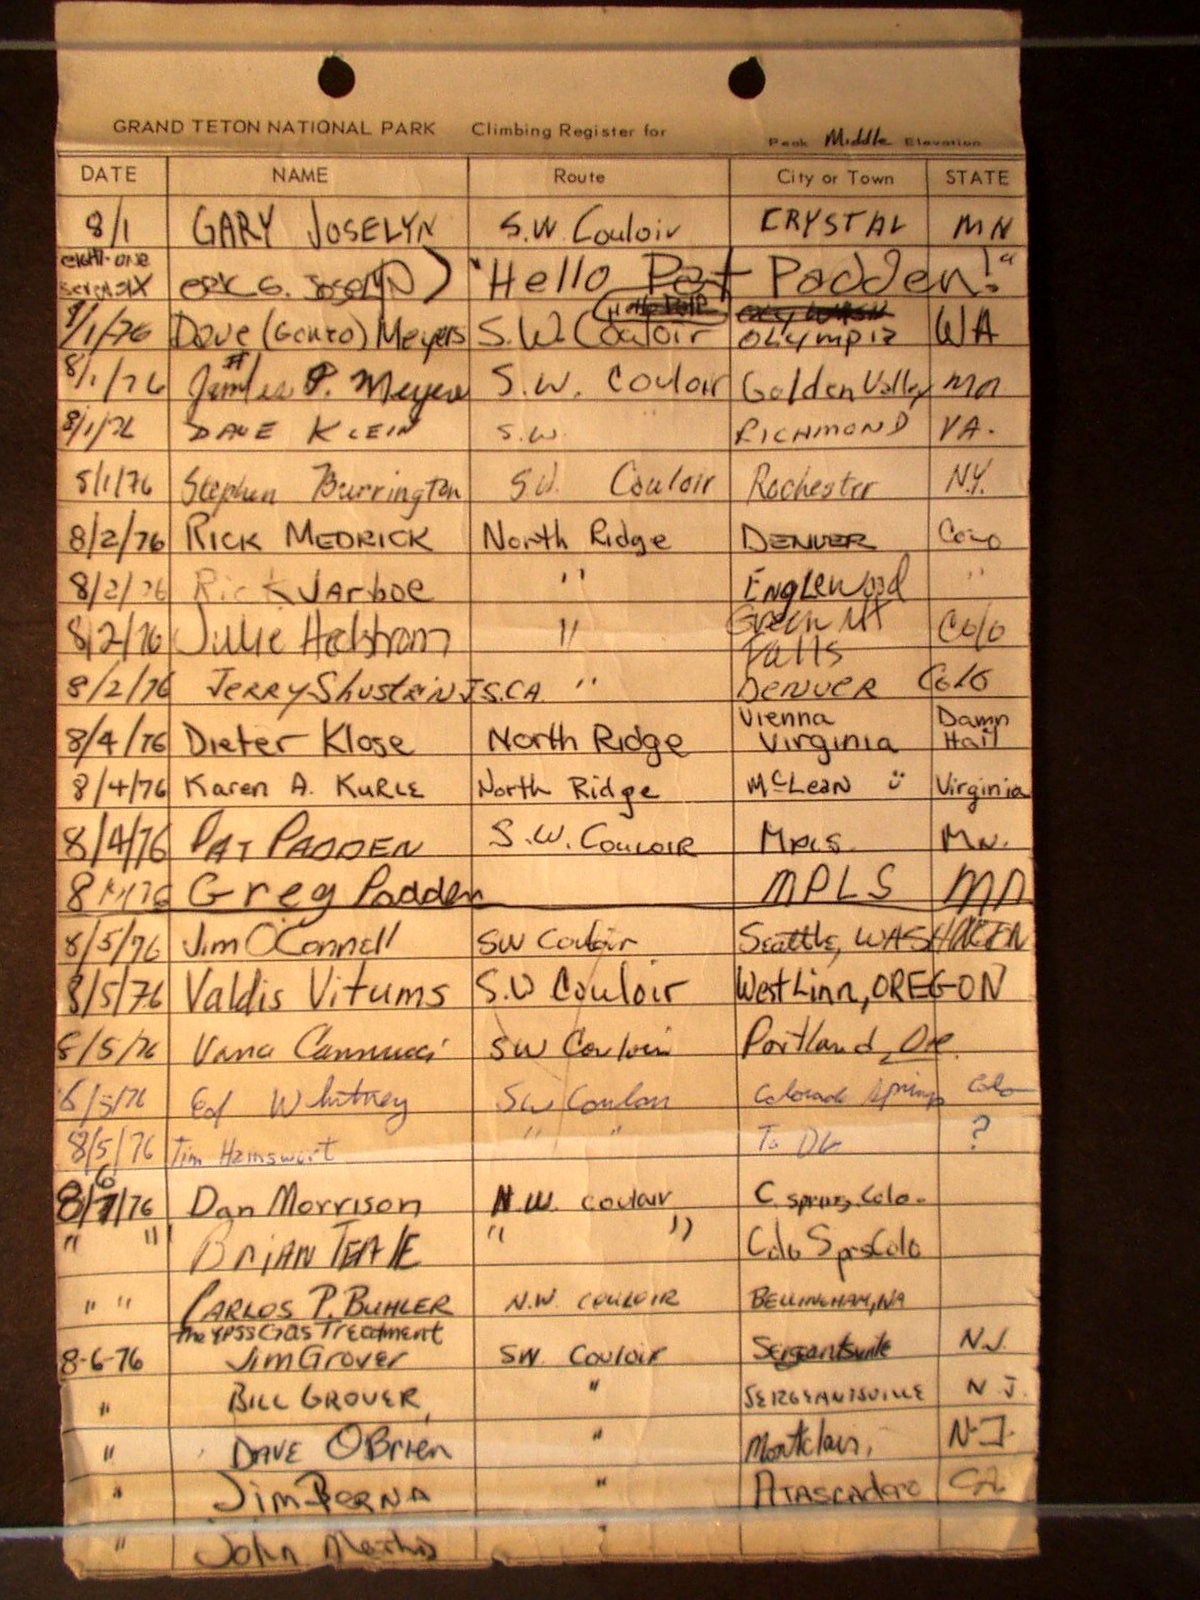 GRAND TETON NATIONAL PARK Climbing Register for Peak Middle Elevation
DATE NAME Route City or Town STATE
8/1 GARY JOSELYN S.W. Couloir CRYSTAL MN
EIGHT-ONE SEVEN SIX ERIC G. JOSELYN) "Hello Pat Padden!"
8/1/76 Dave (Gonzo) Meyers S.W. Couloir Olympia WA
8/1/76 James P. Meyers S.W. Couloir Golden Valley MN
8/1/76 DAVE KLEIN S.W. " RICHMOND VA.
8/1/76 Stephen Burrington SW. Couloir Rochester N.Y.
8/2/76 RICK MEDRICK North Ridge DENVER Colo
8/2/76 Rick Jarboe " Englewood "
8/2/76 Julie Hedstrom " Green Mt Falls Colo
8/2/76 JERRY Shustrin J.S.C.A. " DENVER Colo
8/4/76 Dieter Klose North Ridge Vienna Virginia Damn Hail
8/4/76 Karen A. KURLE North Ridge McLean Virginia
8/4/76 PAT PADDEN S.W. COULOIR MPLS. MN.
8/4/76 Greg Padden MPLS MN
8/5/76 Jim O'Connell SW Couloir Seattle,
8/5/76 Valdis Vitums S.W Couloir West Linn, OREGON
8/5/76 SW Couloir Portland, Ore.
8/5/76 Ed Whitney SW Couloir Colorado Springs Colo
8/5/76 Tim " " ?
8/6/76 Dan Morrison N.W. couloir C. springs, Colo.
" " BRIAN TEALE " " Colo Sprs Colo
" " CARLOS P. BUHLER N.W. COULOIR BELLINGHAM, WA
The Gas Treatment
8-6-76 Jim Grover SW. Couloir Sergeantsville N.J.
" BILL GROVER, " SERGEANTSVILLE N.J.
" DAVE O'Brien " Montclair, N.J.
" Jim BORNA " ATASCADERO CA
" John